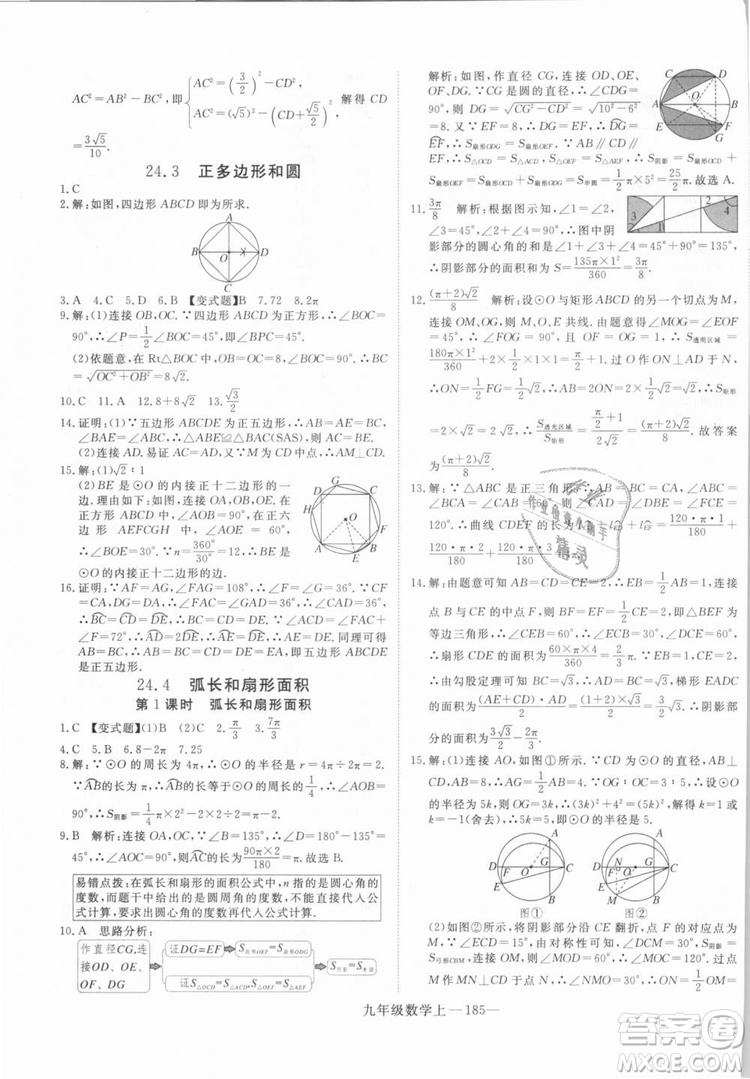 AC²=AB²-BC²,即{AC²=(3/2)²-CD², AC²=(√5)²-(CD+√5/2)², 解得 CD
=3√5/10.
24.3 正多边形和圆
1.C
2.解:如图,四边形 ABCD 即为所求.
A
B O C
D
3.A 4.C 5.D 6.B【变式题】B 7.72 8.2π
9.解:(1)连接 OB,OC.∵四边形 ABCD 为正方形,∴∠BOC=
90°,∴∠P=1/2∠BOC=45°,即∠BPC=45°.
(2)依题意,在 Rt△BOC 中,∠BOC=90°,OB=OC=8,∴BC
=√(OC²+OB²)=8√2.
10.C 11.A 12.8+8√2 13.√3/2
14.证明:(1)∵五边形 ABCDE 为正五边形,∴AB=AE=BC,
∠BAE=∠ABC,∴△EAB≌△BAC(SAS),∴BE=AC.
(2)连接 AD.易证 AC=AD.又∵M 为 CD 中点,∴AM⊥CD.
15.解:(1)√2∶1
(2)BE 是圆内接正十二边形的一
边.理由:连接 OA,OB,OE.在正方
形 ABCD 中,∠AOB=90°.在正六
边形 AEFCGH 中,∠AOE=60°.
∴∠BOE=30°.∵n=360°/30°=12,
∴BE 是正十二边形的边.
16.证明:∵AF=AG,∠FAG=108°,∴∠F=∠G=36°.∵CF
=CA,DA=DG,∴∠CAF=∠F=∠GAD=∠G=36°.∴∠CAD
=36°,∴CD=DE=AE,∴AE=DE.同理可得∠BCA=∠CAF
+∠F=72°,∴AD=2DE,∴AE=DE,∴AE=DE.同理可得
BC=AB=AE.∴BC=AB=CD=AE=DE.∴五边形 ABCDE
是正五边形.
24.4 弧长和扇形面积
第 1 课时 弧长和扇形面积
1.C【变式题】(1)B (2)C 2.π/3 3.7π/3
4.C 5.B 6.8-2π 7.25
8.解:∵⊙O 的周长为 4π,∴⊙O 的半径 r=4π/2π=2.
∵AB的长为π,∴AB的长等于⊙O 的周长的1/4,∴∠AOB=
90°.∴S阴影=1/4π×2²-1/2×2×2=π-2.
9.B 解析:连接 OA,OC,∵∠B=135°,∴∠D=180°-135°
=45°,∴∠AOC=90°,则AC的长=90π×2/180=π.故选 B.
易错点拨:在弧长和扇形的面积公式中,n 指的是圆心角的
度数,而题干中给出的是圆周角的度数,不能直接代入公
式计算,要乘以2变为圆心角的度数,再代入公式计算.
10.A 思路分析:
作直径CG,连
接OD、OE、
OF、DG
证 DG=EF
S扇形OEF=S扇形ODG
证S△OCD=S△ACD,S△OEF=S△AEF
S阴影=S半圆
解析:如图,作直径 CG,连接 OD,OE,
OF,DG.∵CG 是圆的直径,∴∠CDG=
90°,则 DG=√(CG²-CD²)=√(10²-6²)
=8.又∵EF=8,∴DG=EF,∴DG=EF,
∴S扇形ODG=S扇形OEF.∵AB∥CD∥
EF,∴S△OCD=S△ACD,S△OEF=S△AEF,∴S阴影=S扇形OCD
+S扇形OEF=S扇形OCD+S扇形ODG=S半圆=1/2π×5²=25/2π.故选A.
11.3π/8 解析:根据图示知,∠1=∠2,∠1+
∠3=45°,∠2+∠4=90°,∴图中阴
影部分的圆心角的和是 90°+90°-∠1-∠2+∠3=135°,
∴阴影部分的面积应为 S=135π×1²/360=3π/8.
12.(π+2)√2/8 解析:设⊙O 与矩形 ABCD 的另一个切点为 M,
连接 OM,OG,则 M,O,E 共线.由题意得∠MOG=∠EOF
=45°,∴∠FOG=90°,且 OF=OG=1,∴S透明区域=
180π×1²/360+2×1/2×1²=π/2+1.过 O 作 ON⊥AD 于 N,
∴ON=1/2FG=√2/2,∴AB=2ON=2×√2/2=√2,∴S矩形
=2×√2=2√2,∴S透光区域/S矩形=(π/2+1)/2√2=(π+2)√2/8.故答案
为(π+2)√2/8.
13.解:∵△ABC 是正三角形,∴∠ABC=
∠BCA=∠CAB=60°,∴∠CAD=∠DBE=∠ECF=
120°.∴曲线 CDEF 的长=120·π·1/180+
120·π·2/180+120·π·3/180=4π.
14.解:由题意可知,AB=CE=2,∠A=∠ABF=90°.过点 E
作 EF⊥BC 于点 F,则 BF=EF=1/2CE=1,
∴∠CEB=60°,∠BCE=30°,∴∠DCE=60°,
∴扇形 CDE 的面积为60π×2²/360=2π/3.
∴由勾股定理可得 BE=√3,
面积为(AE+CD)/2·AD=3√3/2,∴阴影
部分的面积为3√3/2-2π/3.
15.解:(1)连接 AO,如图①所示.∵CD⊥AB,AB=8,∴AG=
1/2AB=4.∵OG∶OC=3∶5,设⊙O
的半径为 5k,则 OG=3k,∴(3k)²+4²=(5k)²,解得 k=1 或 k=
-1(舍去),∴5k=5,即⊙O 的半径是5.
图① 图②
(2)如图②所示,将阴影部分沿 CE 翻折,点 F 的对应点为
M,∵∠ECD=15°,由对称性可知,∠DCM=30°,S阴影=
S弓形CBM.连接 OM,则∠MOD=60°,∴∠MOC=120°.过点
M 作 MN⊥CD 于点 N,∴MN=MO·sin60°=5×√3/2=
九年级数学上—185—
作业精灵
答案圈
MXQE.COM